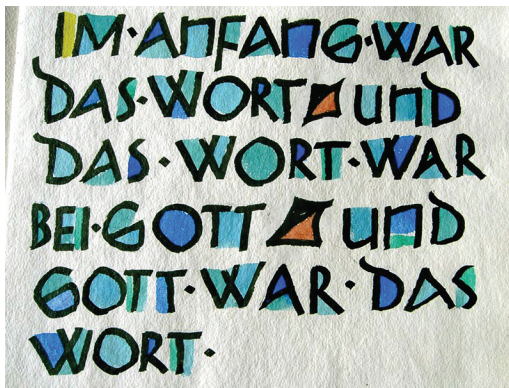 IM·ANFANG·WAR
DAS·WORT und
DAS·WORT·WAR
BEI·GOTT und
GOTT·WAR·DAS
WORT·